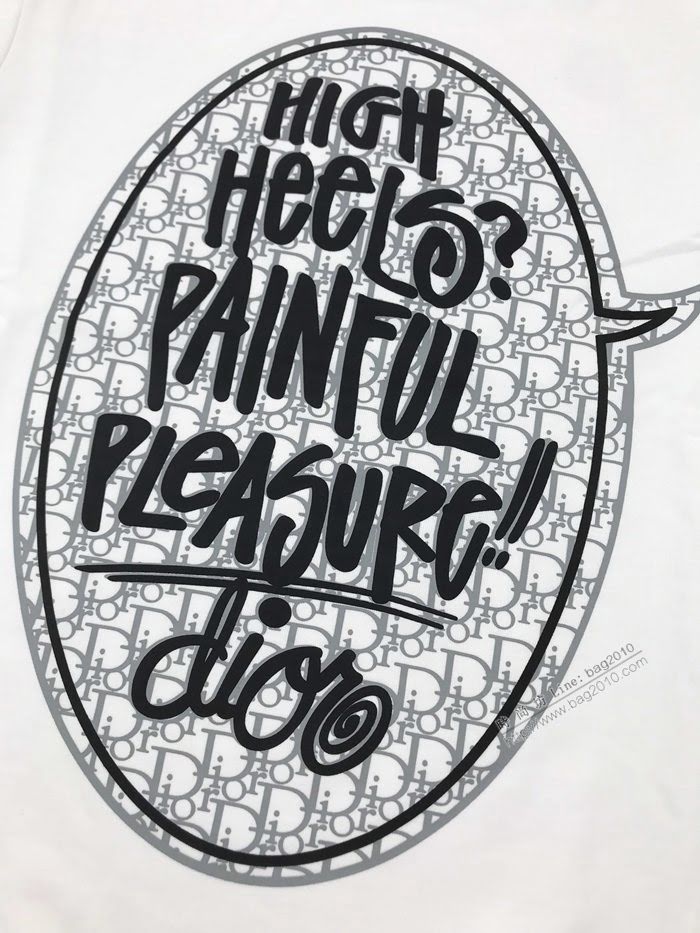 HIGH
HEELS?
PAINFUL
PLEASURE!!
dior
時尚方 Line: bag2010
https://www.bag2010.com